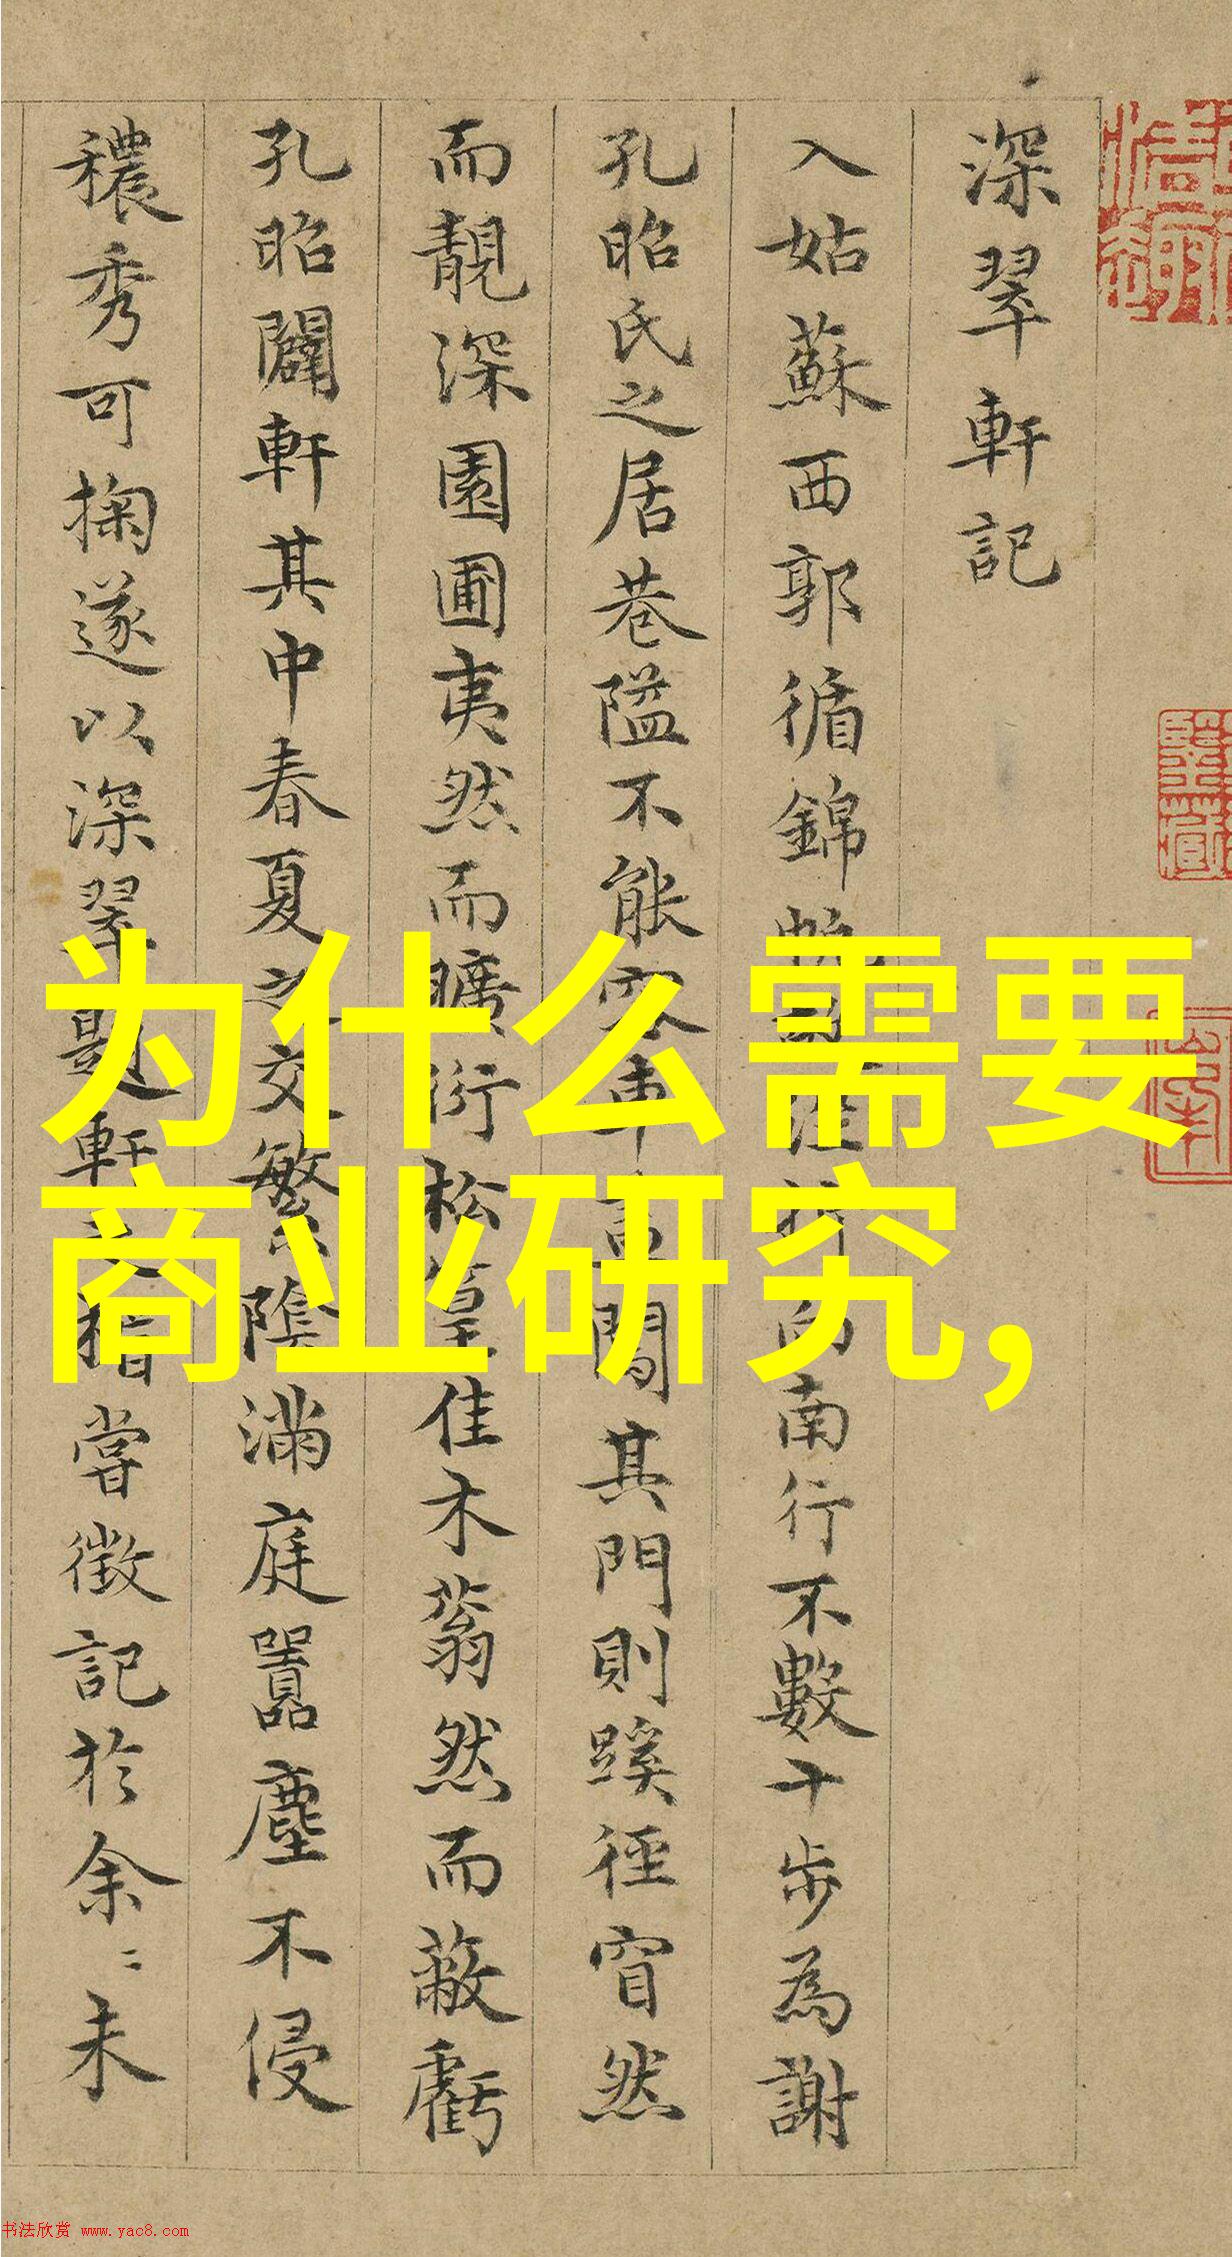 深翠軒記
入姑蘇西郭循錦帆涇折向南行不數十步為謝
孔昭氏之居巷隘不能容車闖其門則蹊徑窅然
而靚深園圃夷然而曠衍松篁佳木蓊然而蔽虧
孔昭闢軒其中春夏之交繁陰滿庭囂塵不侵
穠秀可掬遂以深翠題軒之楣嘗徵記於余〻未
为什么需要
商业研究,
书法欣赏 www.yac8.com